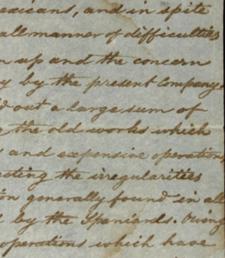 exicans, and in spite
all manner of difficulties
n up and the concern
y by the present Company
d out a large sum of
the old works which
s and expensive operations
cting the irregularities
ion generally found in all
d by the Spaniards. Owing
operations which have